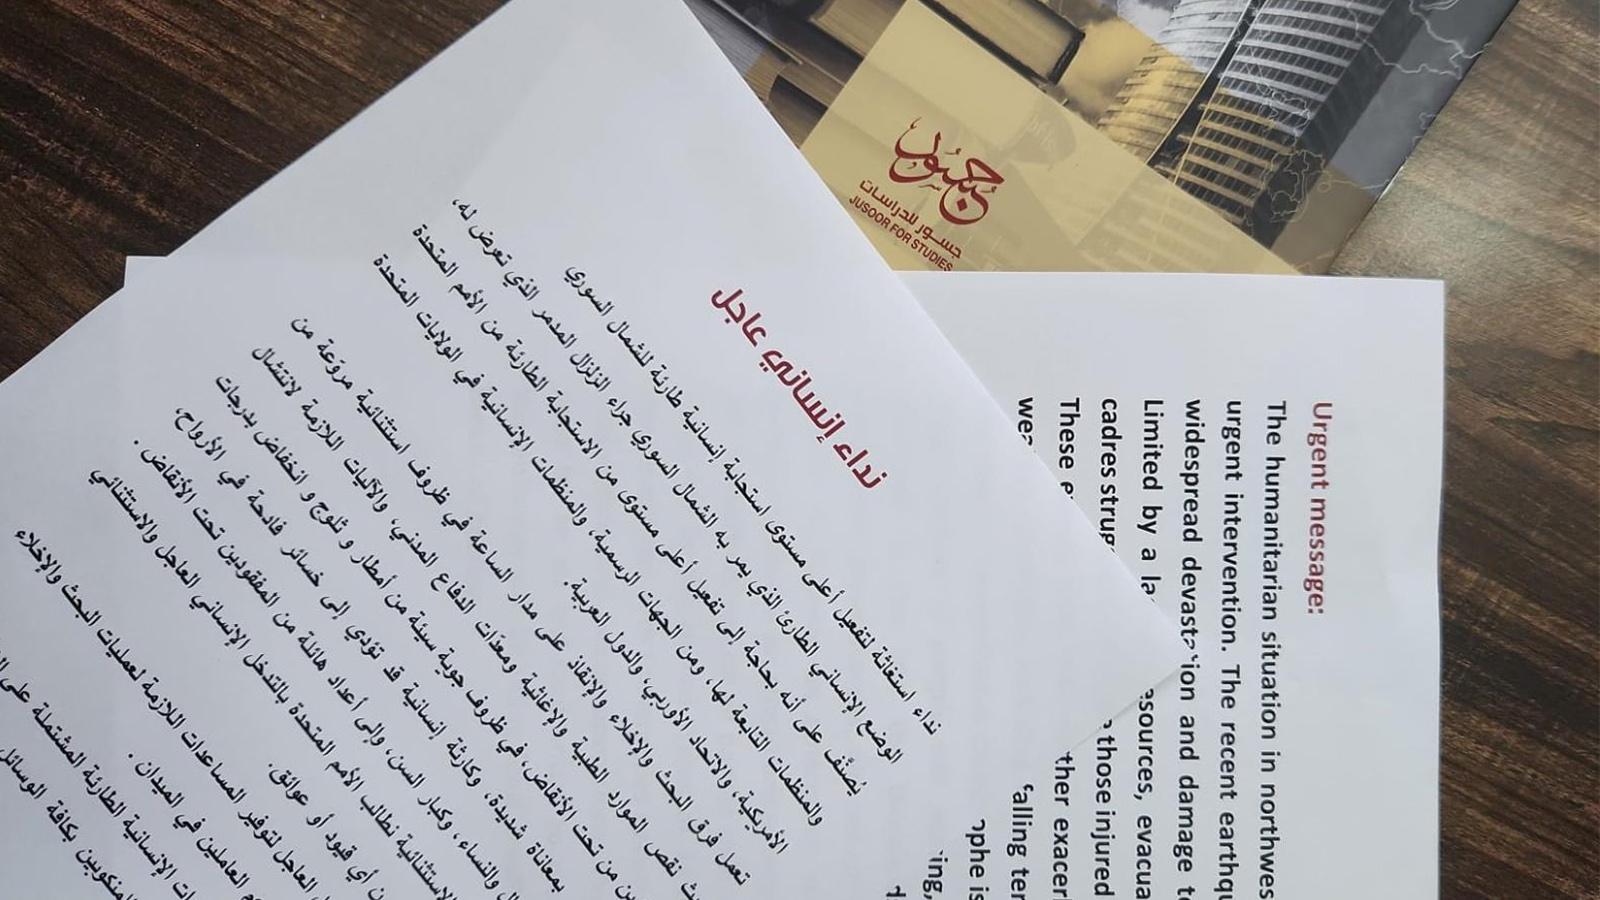 جسور
جسور للدراسات
JUSOOR FOR STUDIES
نداء إنساني عاجل
نداء استغاثة لتفعيل أعلى مستوى استجابة إنسانية طارئة للشمال السوري
الوضع الإنساني الطارئ الذي يمر به الشمال السوري جراء الزلزال المدمر الذي تعرض له،
يُصنَّف على أنه بحاجة إلى تفعيل أعلى مستوى من الاستجابة الطارئة من الأمم المتحدة
والمنظمات التابعة لها، ومن الجهات الرسمية، والمنظمات الإنسانية في الولايات المتحدة
الأمريكية، والاتحاد الأوربي، والدول العربية.
تعمل فرق البحث والإخلاء والإنقاذ على مدار الساعة في ظروف استثنائية مروّعة من
نقص الموارد الطبية والإغاثية ومعدّات الدفاع المدني، والآليات اللازمة لانتشال
من تحت الأنقاض، في ظروف جوية سيئة من أمطار و ثلوج و انخفاض بدرجات
بمعاناة شديدة، وكارثة إنسانية قد تؤدي إلى خسائر فادحة في الأرواح،
والنساء، وكبار السن، وإلى أعداد هائلة من المفقودين تحت الأنقاض.
الاستثنائية نطالب الأمم المتحدة بالتدخل الإنساني العاجل والاستثنائي
أي قيود أو عوائق.
العاجل لتوفير المساعدات اللازمة لعمليات البحث والإخلاء
العاملين في الميدان.
الإنسانية الطارئة المشتملة على
بكافة الوسائل
Urgent message:
The humanitarian situation in
urgent intervention. The recent
widespread devastation and damage
Limited by a
cadres those injured
These